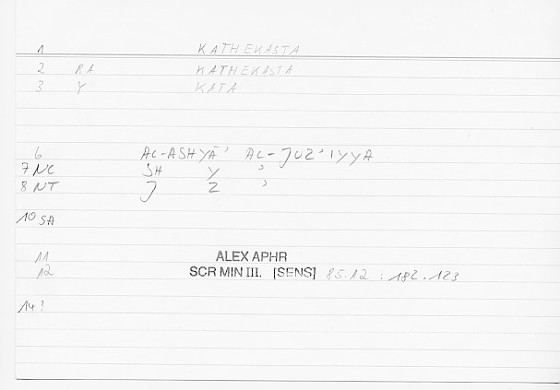 1 KATHEKASTA
2 RA KATHEKASTA
3 Y KATA
6 AL-ASHYĀ' AL-JUZ'IYYA
7 NC SH Y '
8 NT J Z '
10 SA
11 ALEX APHR
12 SCR MIN III. [SENS] 85.12 : 182.123
14 ?